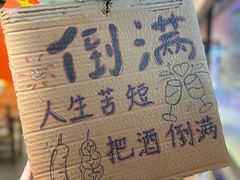 倒满
人生苦短
把酒倒满